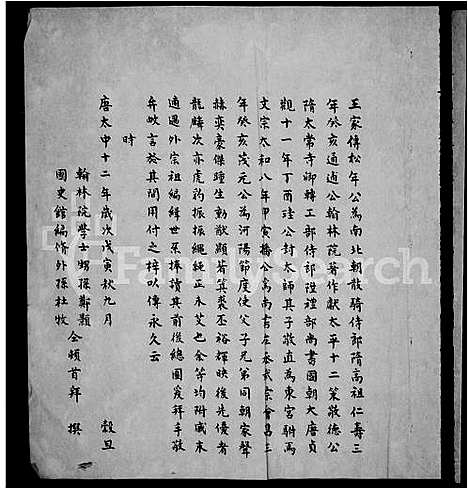 王家傳松年公為南北朝散騎侍郎隋高祖仁壽三
年癸亥通公翰林院著作獻太平十二策敬德公
隋太常寺卿轉工部侍郎陞禮部尚書國朝大唐貞
觀十一年丁酉珪公封太師其子敬直為東宮駙馬
文宗太和八年甲寅播公為尚書左丞武宗會昌三
年癸亥茂元公為河陽節度使父子兄弟同朝家聲
赫奕豪傑鍾生勳猷顯著箕裘丕裕輝映後先優者
龍麟次亦虎豹振振繩繩正未艾也余等均附戚末
適過外宗祖編緝世系捧讀其前後總圖爰拜手敬
弁數言於其間用付之梓以傳永久云
時
唐太中十二年歲次戊寅秋九月 穀旦
翰林院學士甥孫鄭顥
國史館編脩外孫杜牧
仝頓首拜 撰
FamilySearch